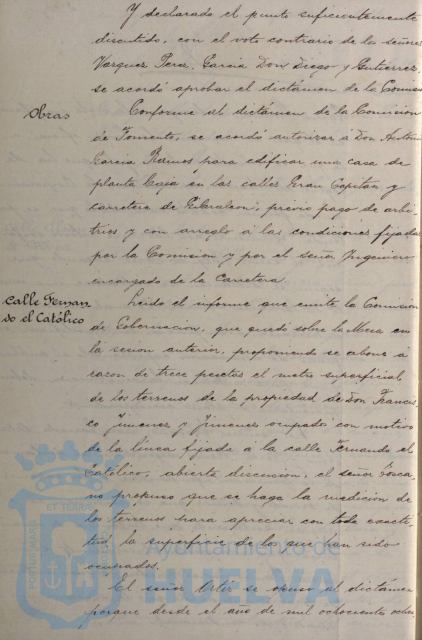 Y declarado el punto suficientemente
discutido, con el voto contrario de los señores
Vazquez Perez, Garcia Don Diego y Gutierrez,
se acordó aprobar el dictámen de la Comisión
Obras
Conforme al dictámen de la Comision
de Fomento, se acordó autorizar á Don Antonio
Garcia Ramos para edificar una casa de
planta baja en las calles Gran Capitan y
carretera de Gibraleon, previo pago de arbi-
trios y con arreglo á las condiciones fijadas
por la Comision y por el señor Ingeniero
encargado de la Carretera.
Calle Fernan
do el Católico
Leido el informe que emite la Comision
de Gobernacion, que quedó sobre la Mesa en
la sesion anterior, proponiendo se abone á
razon de trece pesetas el metro superficial
de los terrenos de la propiedad de Don Francis-
co Jimenez y Jimenez ocupados con motivo
de la linea fijada á la calle Fernando el
Católico, abierta discusion, el señor
no propuso que se haga la medicion de
los terrenos para apreciar con toda exacti-
tud, la superficie de los que han sido
ocupados.
El señor se opuso al dictámen
porque desde el año de mil ochocientos ochen
PORTUS MARIS ET TERRAE
Ayuntamiento de
HUELVA